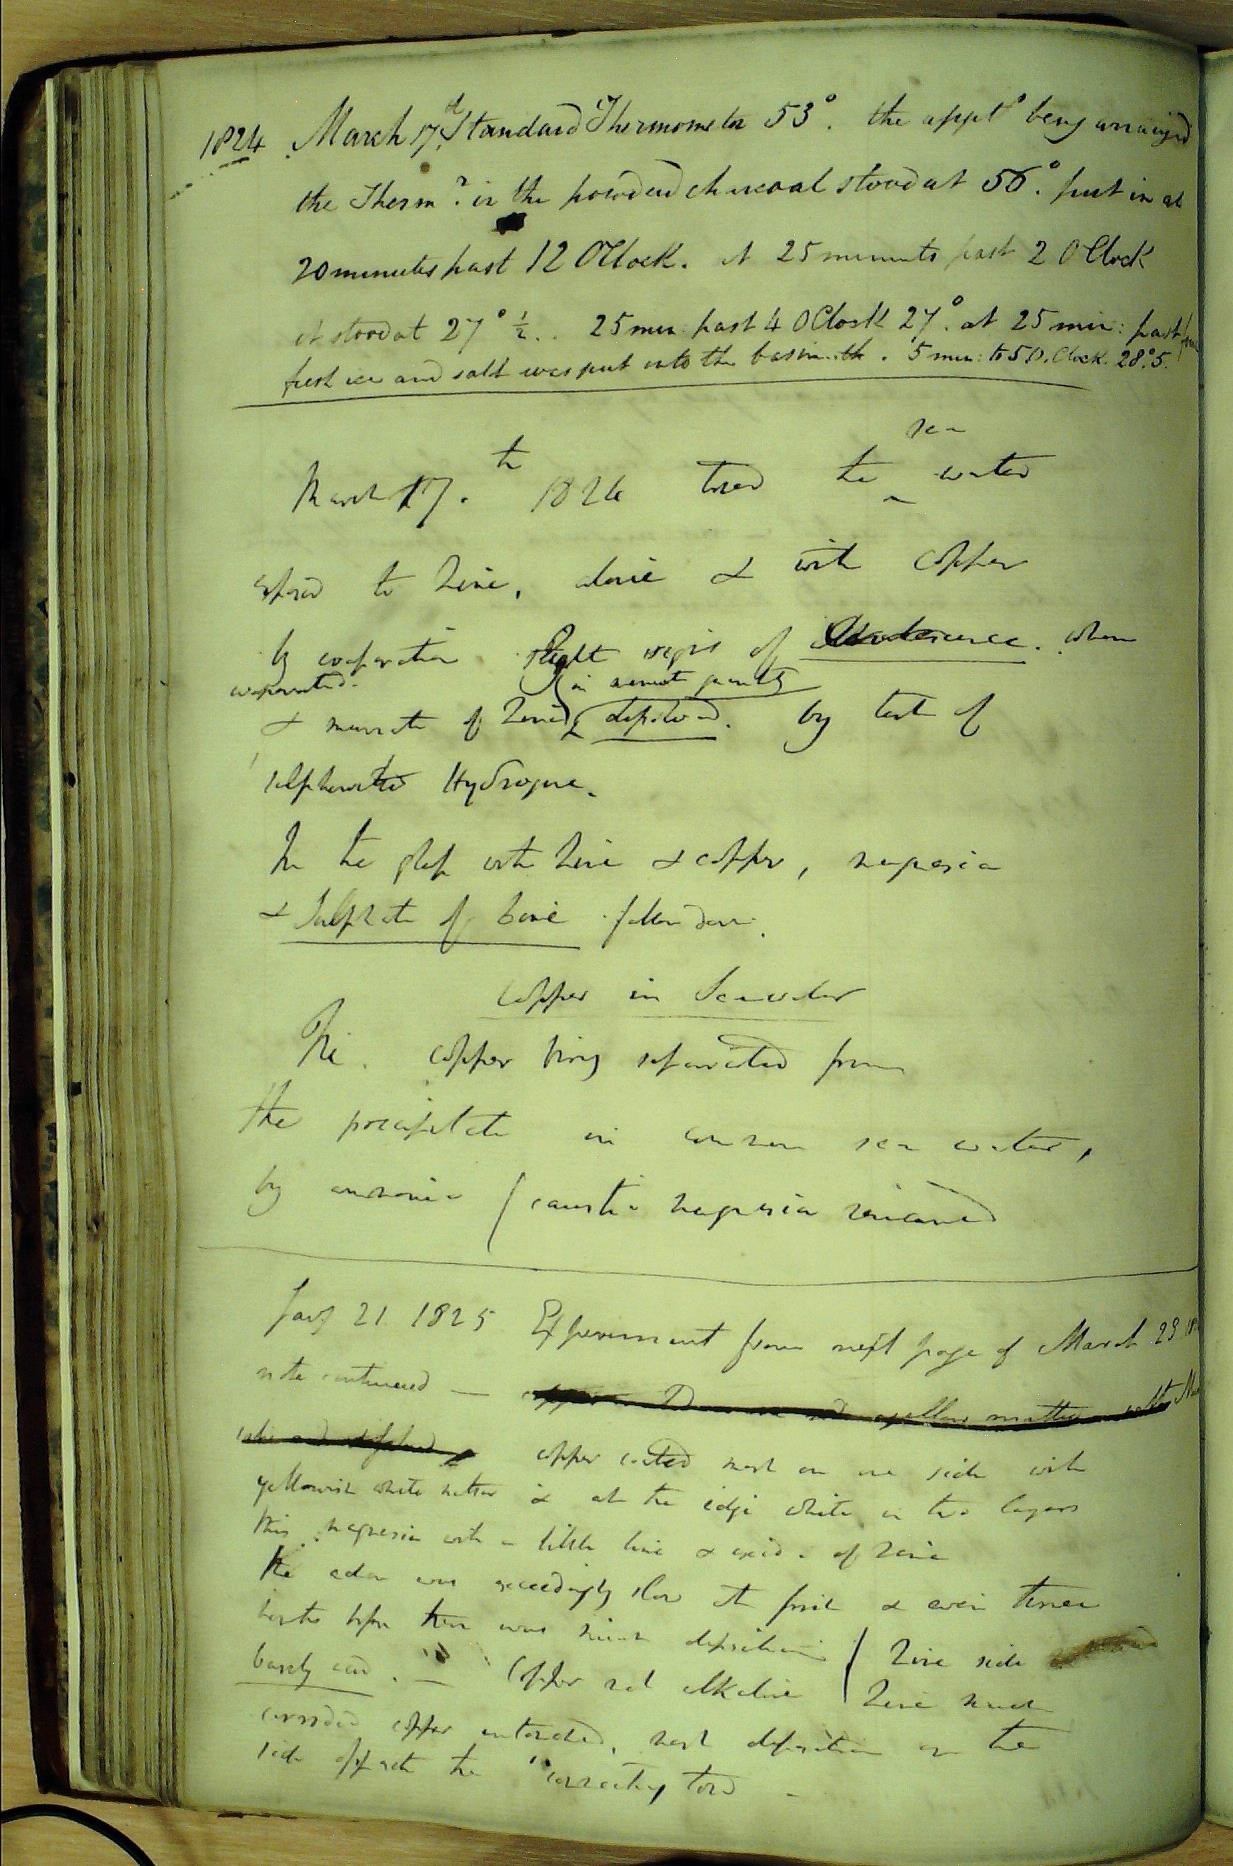 1824 March 17th Standard Thermometer 53°. the appts being arranged
the Therm.r in the powdered charcoal stood at 56.° put in at
20 minutes past 12 O'Clock. at 25 minuets past 2 O Clock
it stood at 27° ½.. 25 min past 4 O Clock 27°. at 25 min: past
fresh ice and salt was put into the bason. 5 min: to 5 O,Clock. 28°.5.
sea
March 17.th 1824 tried the ^ water
exposed to Zinc, alone & with copper
by evaporation. slight signs of . when
evaporated. in minute quantity
& muriate of Zinc dissolved. by test of
sulphuretted Hydrogene.
In the glass with Zinc & copper, magnesia
& Sulphate of Zinc
Copper in Seawater
The copper being separated from
the precipitate in common sea water,
by ammonia ( caustic magnesia remained
Jany 21 1825 Experiment from next page of March 23
note continued —
copper coated most on one side with
yellowish white matter & at the edge white in two layers
this magnesia with a little lime & oxide of Zinc
the action was exceedingly slow at first & even three
months before there was much deposition ( Zinc side
barely acid. — Copper not alkaline Zinc much
corroded copper untouched, most deposition on the
side opposite the